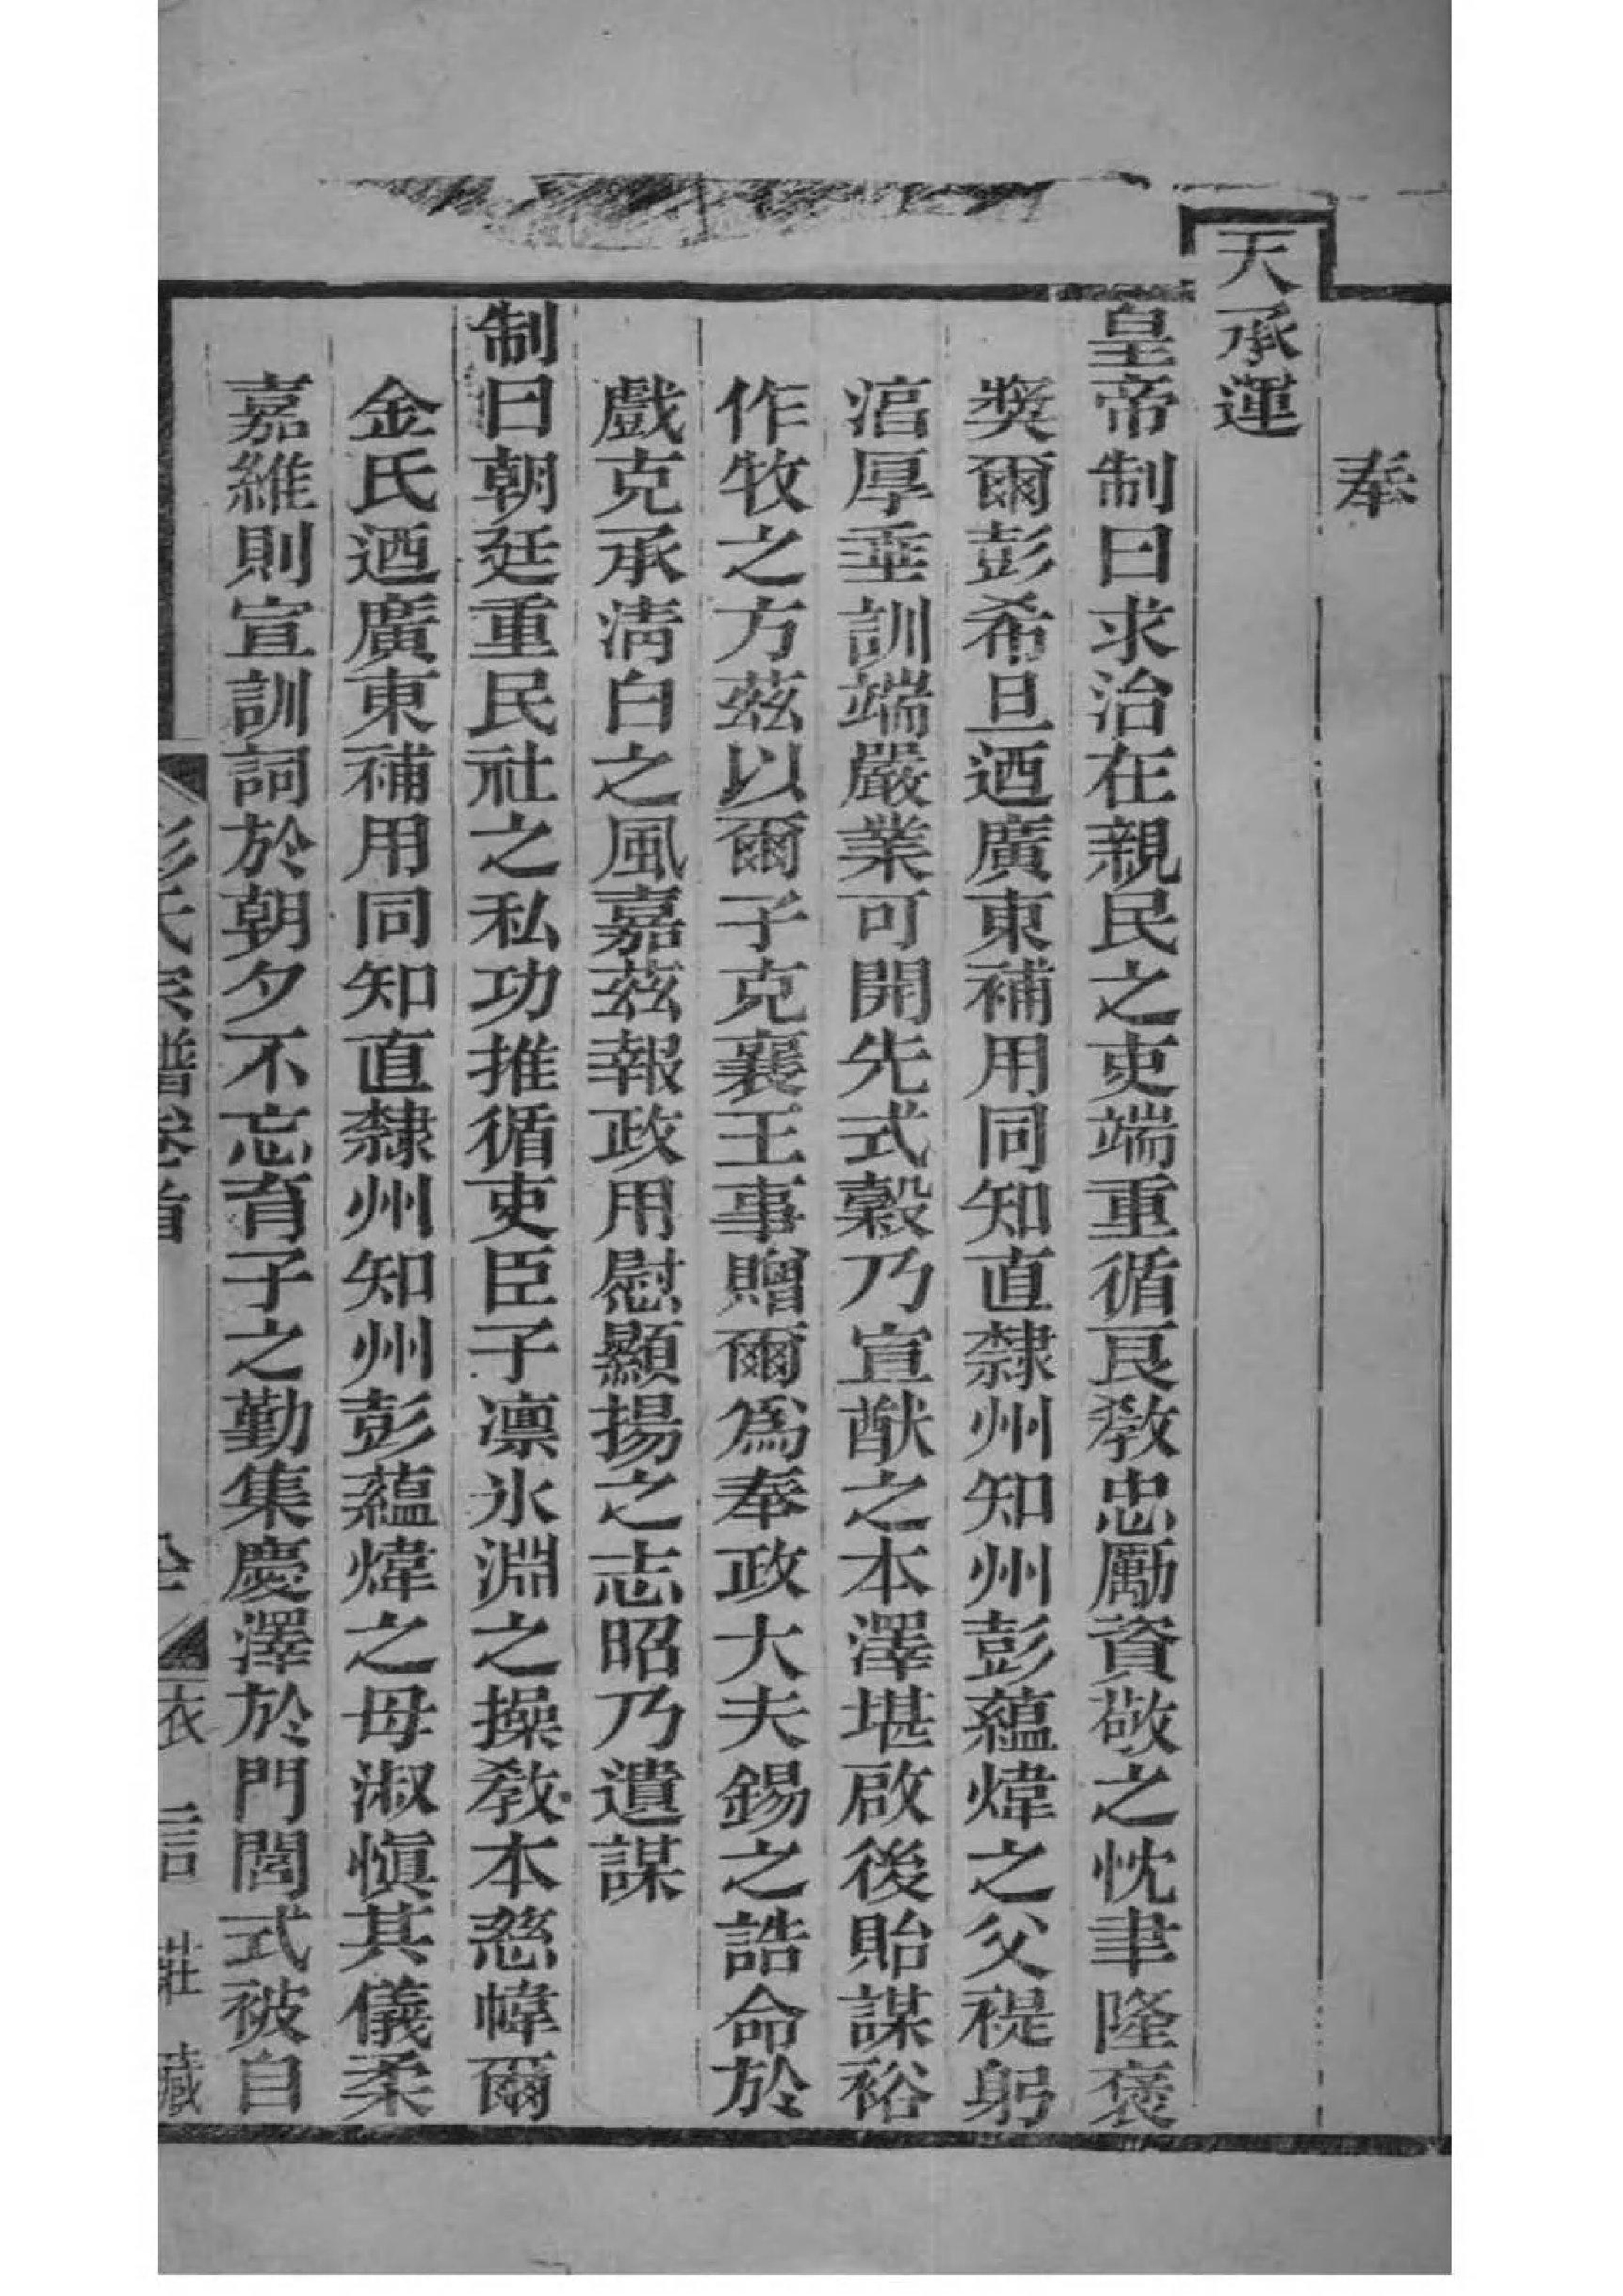 奉
天承運
皇帝制曰求治在親民之吏端重循良教忠勵資敬之忱聿隆褒
獎爾彭希旦迺廣東補用同知直隸州知州彭蘊煒之父禔躬
涫厚垂訓端嚴業可開先式穀乃宣猷之本澤堪啟後貽謀裕
作牧之方茲以爾子克襄王事贈爾為奉政大夫錫之誥命於
戲克承淸白之風嘉茲報政用慰顯揚之志昭乃遺謀
制曰朝廷重民社之私功推循吏臣子凛氷淵之操教本慈幃爾
金氏迺廣東補用同知直隸州知州彭蘊煒之母淑愼其儀柔
嘉維則宣訓詞於朝夕不忘育子之勤集慶澤於門閭式被自
彭氏宗譜卷首
衣言莊藏